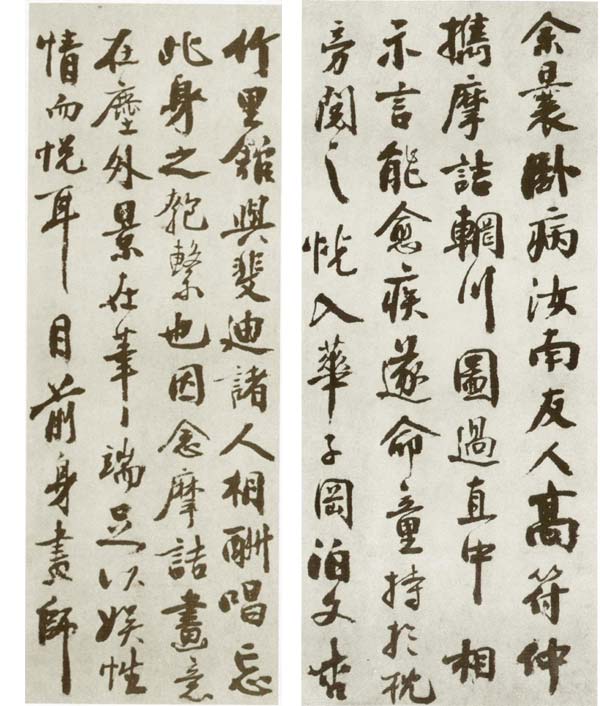 余曩卧病汝南友人高符仲
攜摩詰輞川圖過直中相
示言能愈疾遂命童持於枕
旁閱之恍入華子岡泊文杏
竹里館與斐迪諸人相酬唱忘
此身之匏繫也因念摩詰畫意
在塵外景在筆端足以娛性
情而悅耳目前身畫師